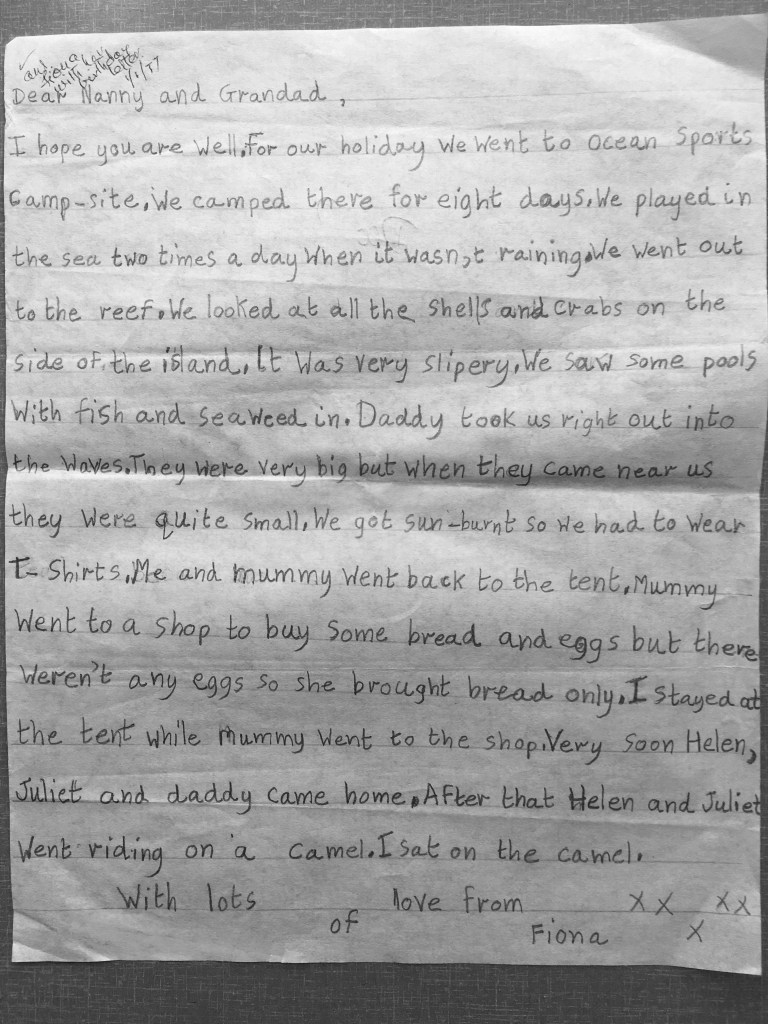 ✓ and
fiona
with her
birthday
letter
1/1/77
Dear Nanny and Grandad,
I hope you are well.For our holiday we went to ocean Sports
Camp-site.We camped there for eight days.We played in
the sea two times a day when it wasn,t raining.We went out
to the reef.We looked at all the shells and crabs on the
side of the island.It was very slipery.We saw some pools
with fish and seaweed in.Daddy took us right out into
the waves.They were very big but when they came near us
they were quite small.We got sun-burnt so we had to wear
T-Shirts.Me and mummy went back to the tent.Mummy
went to a shop to buy some bread and eggs but there
weren't any eggs so she brought bread only.I stayed at
the tent while mummy went to the shop.Very soon Helen,
Juliet and daddy came home.After that Helen and Juliet
went riding on a camel.I sat on the camel.
With lots of love from x x x x
Fiona x